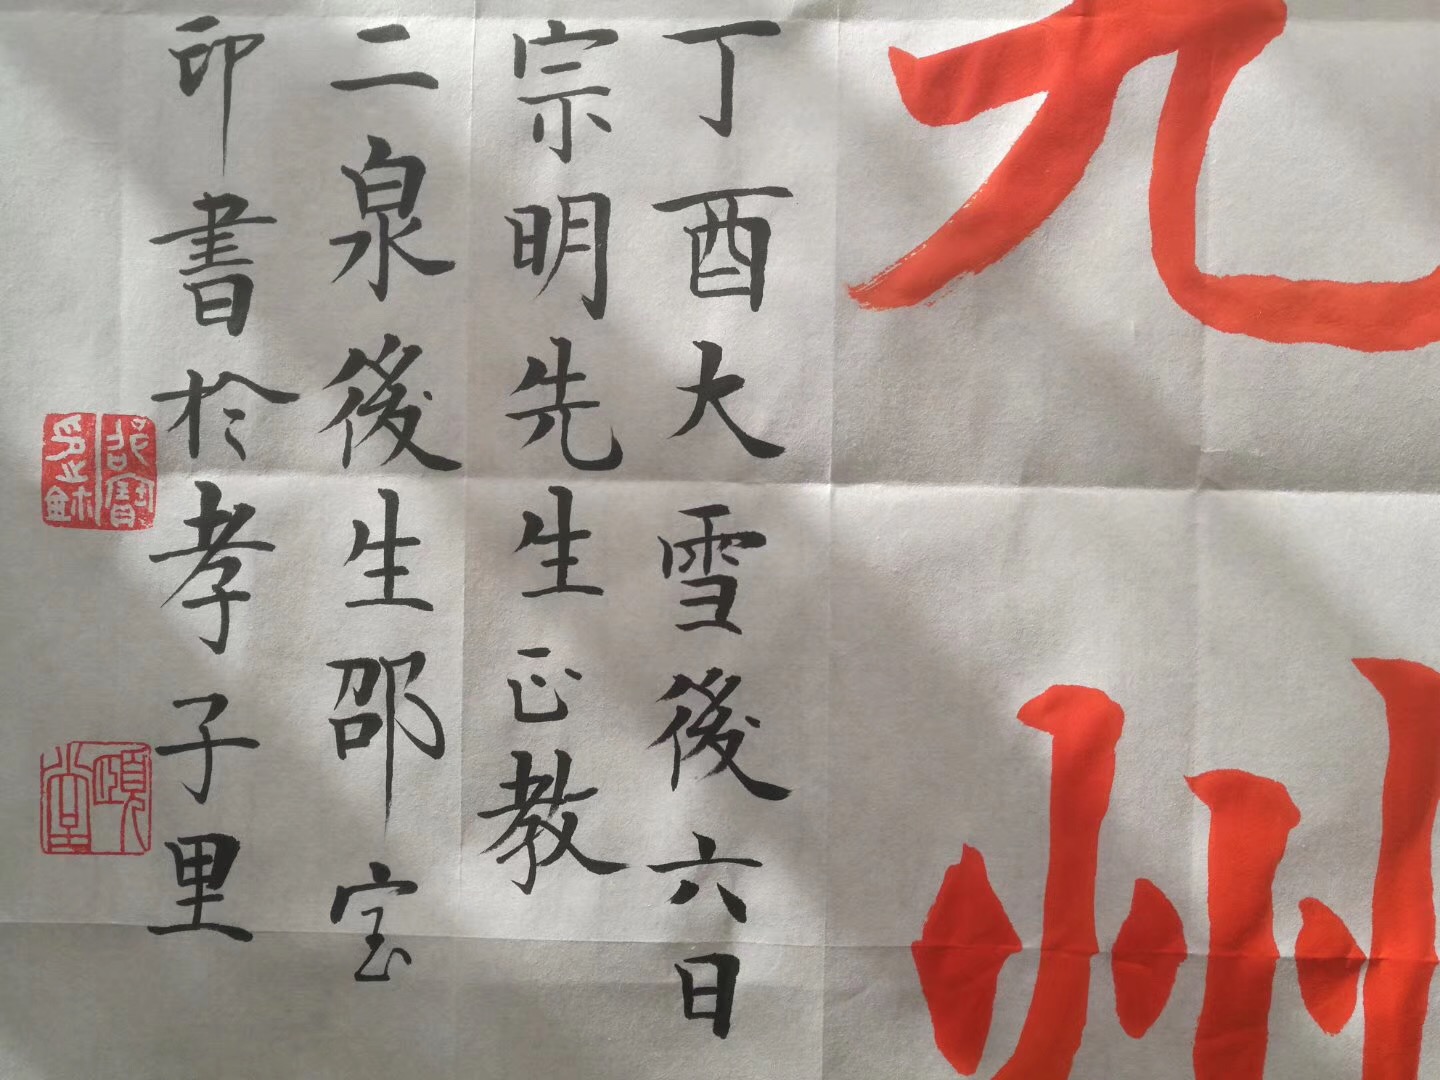 九州
丁酉大雪後六日
宗明先生正教
二泉後生邵宝
印書於孝子里